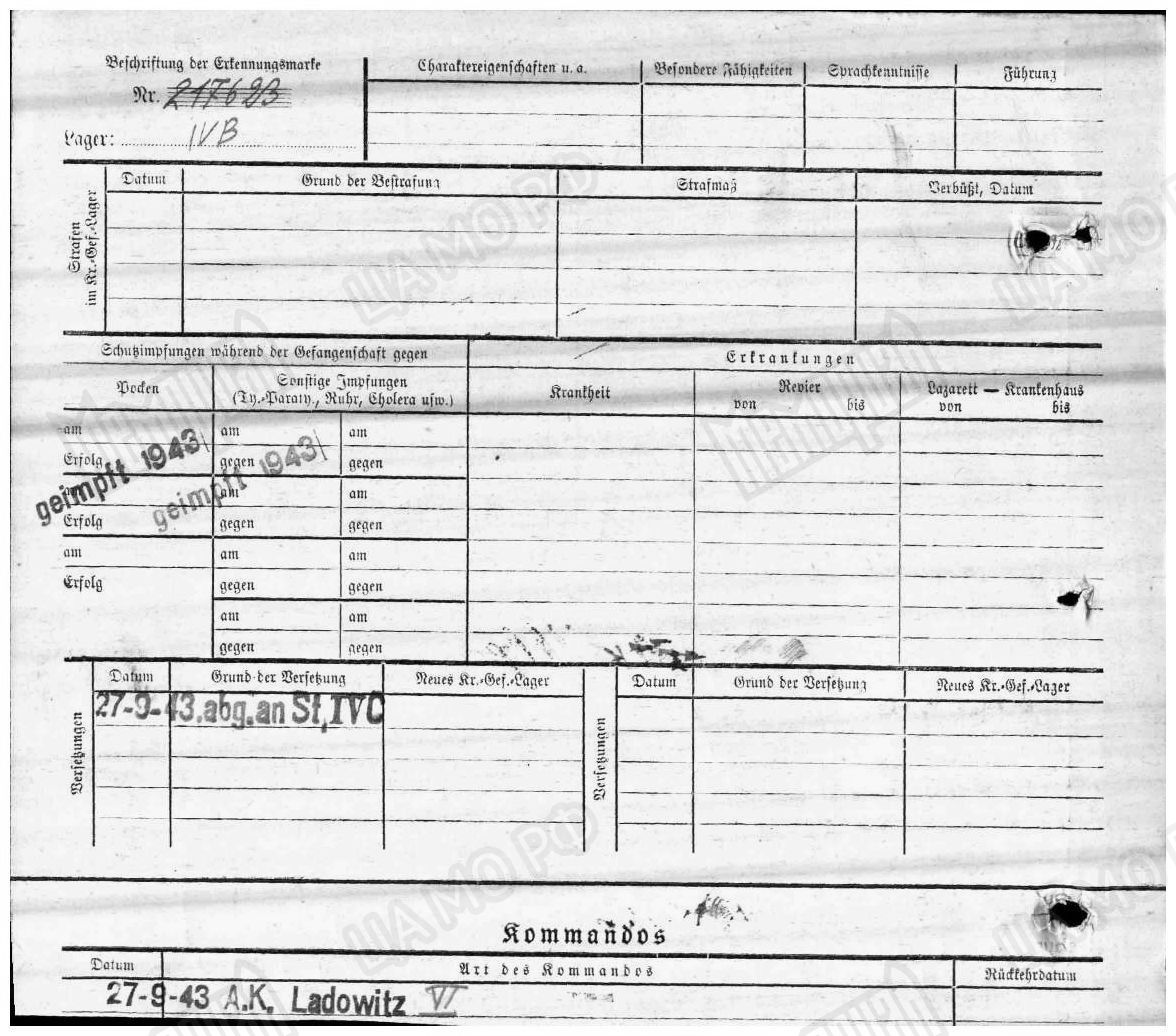 Beschriftung der Erkennungsmarke
Nr. 217623
Lager: IVB
Charaktereigenschaften u. a.
Besondere Fähigkeiten
Sprachkenntnisse
Führung
Strafen im Kr.-Gef.-Lager
Datum
Grund der Bestrafung
Strafmaß
Verbüßt, Datum
Schutzimpfungen während der Gefangenschaft gegen
Erkrankungen
Pocken
Sonstige Impfungen
(Ty.-Paraty., Ruhr, Cholera usw.)
Krankheit
Revier
von bis
Lazarett — Krankenhaus
von bis
am am am
Erfolg gegen gegen
geimpft 1943
geimpft 1943
am am am
Erfolg gegen gegen
am am am
Erfolg gegen gegen
am am
gegen gegen
Versetzungen
Datum Grund der Versetzung Neues Kr.-Gef.-Lager
27-9-43.abg.an St.IVC
Versetzungen
Datum Grund der Versetzung Neues Kr.-Gef.-Lager
Kommandos
Datum Art des Kommandos Rückkehrdatum
27-9-43 A.K. Ladowitz VI
ЦАМО РФ